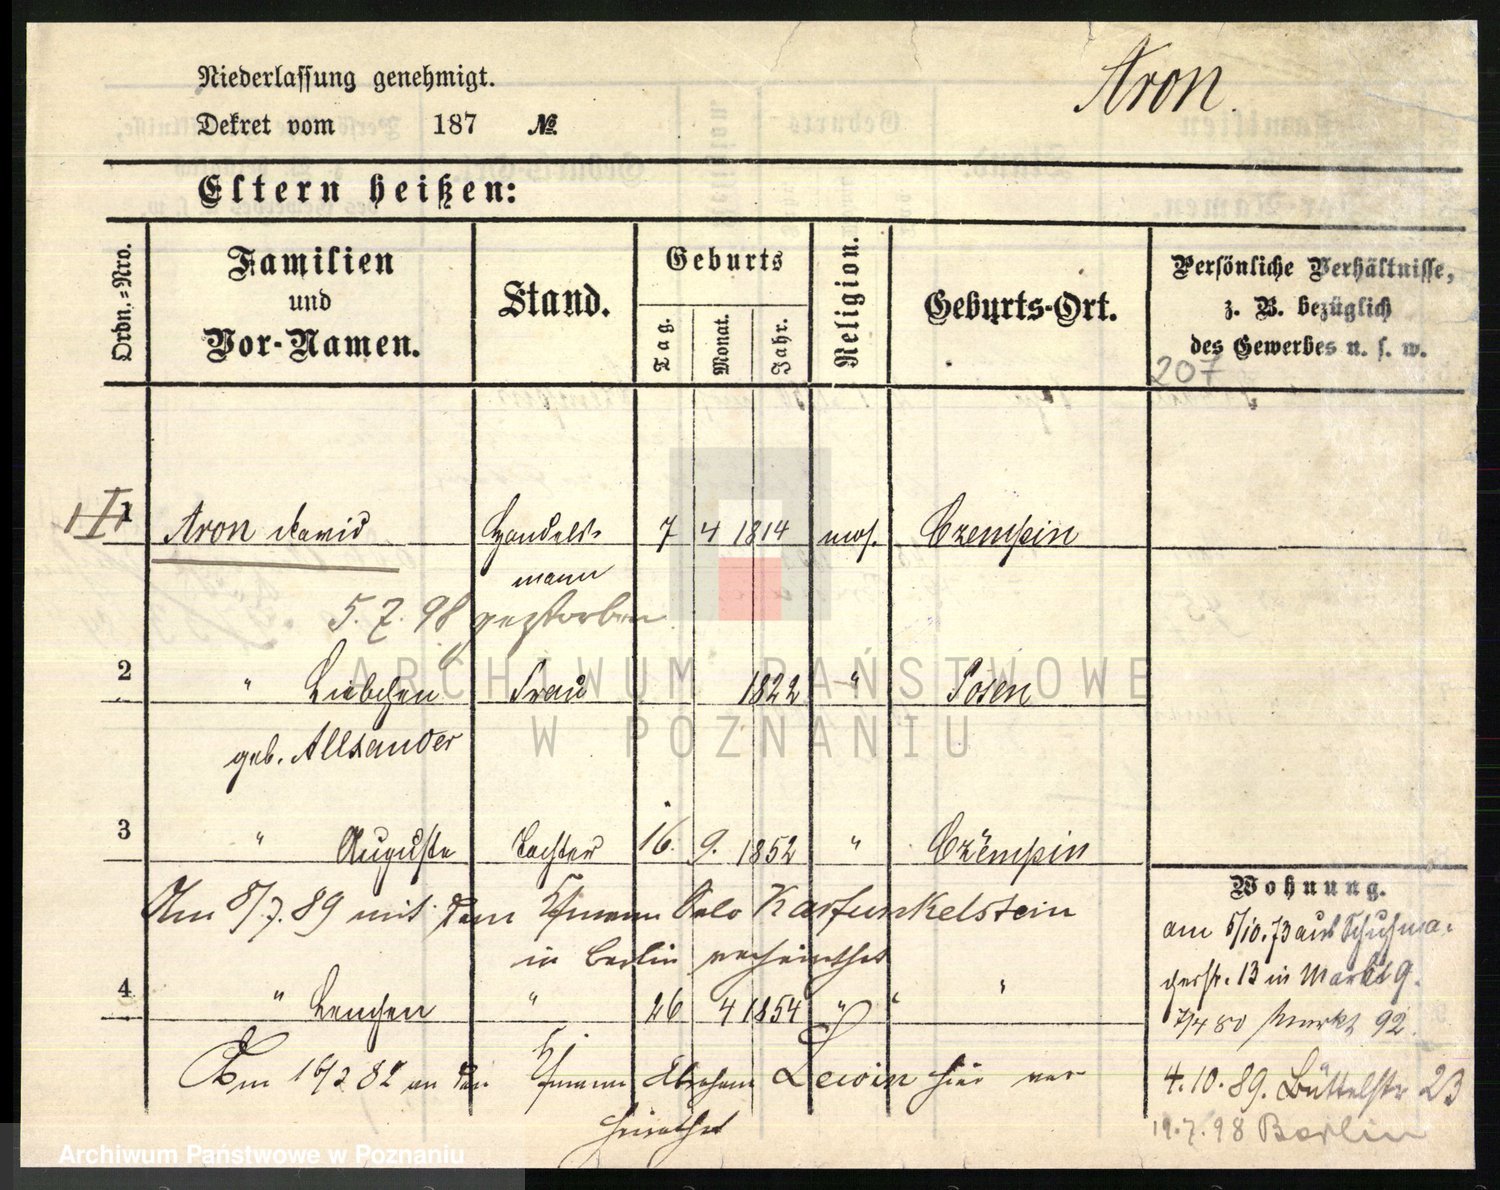 Aron.
Niederlassung genehmigt.
Dekret vom 187 №
Eltern heißen:
Ordn.=Nro.
Familien
und
Vor-Namen.
Stand.
Geburts
Tag.
Monat.
Jahr.
Religion.
Geburts-Ort.
Persönliche Verhältnisse,
z. B. bezüglich
des Gewerbes u. s. w.
207
1 Aron David Handels- 7 4 1814 mos. Czempin
mann
5. 7. 98 gestorben
2 " Liebchen Frau 1822 " Posen
geb. Allxander
3 " Auguste Tochter 16. 9. 1852 " Czempin
Am 8/7. 89 mit dem Kfmann Salo Karfunkelstein
in Berlin verheirathet
4 " Lenchen " 26 4 1854 " " "
Am 82 an den Kfmann Abraham Lewin hier ver-
heirathet
Wohnung.
am 5/10.73 aus Schuhma-
cherstr. 13 in Markt 9.
7/4 80 Markt 92.
4.10.89. Büttelstr 23
19.7.98 Berlin
ARCHIWUM PAŃSTWOWE
W POZNANIU
Archiwum Państwowe w Poznaniu